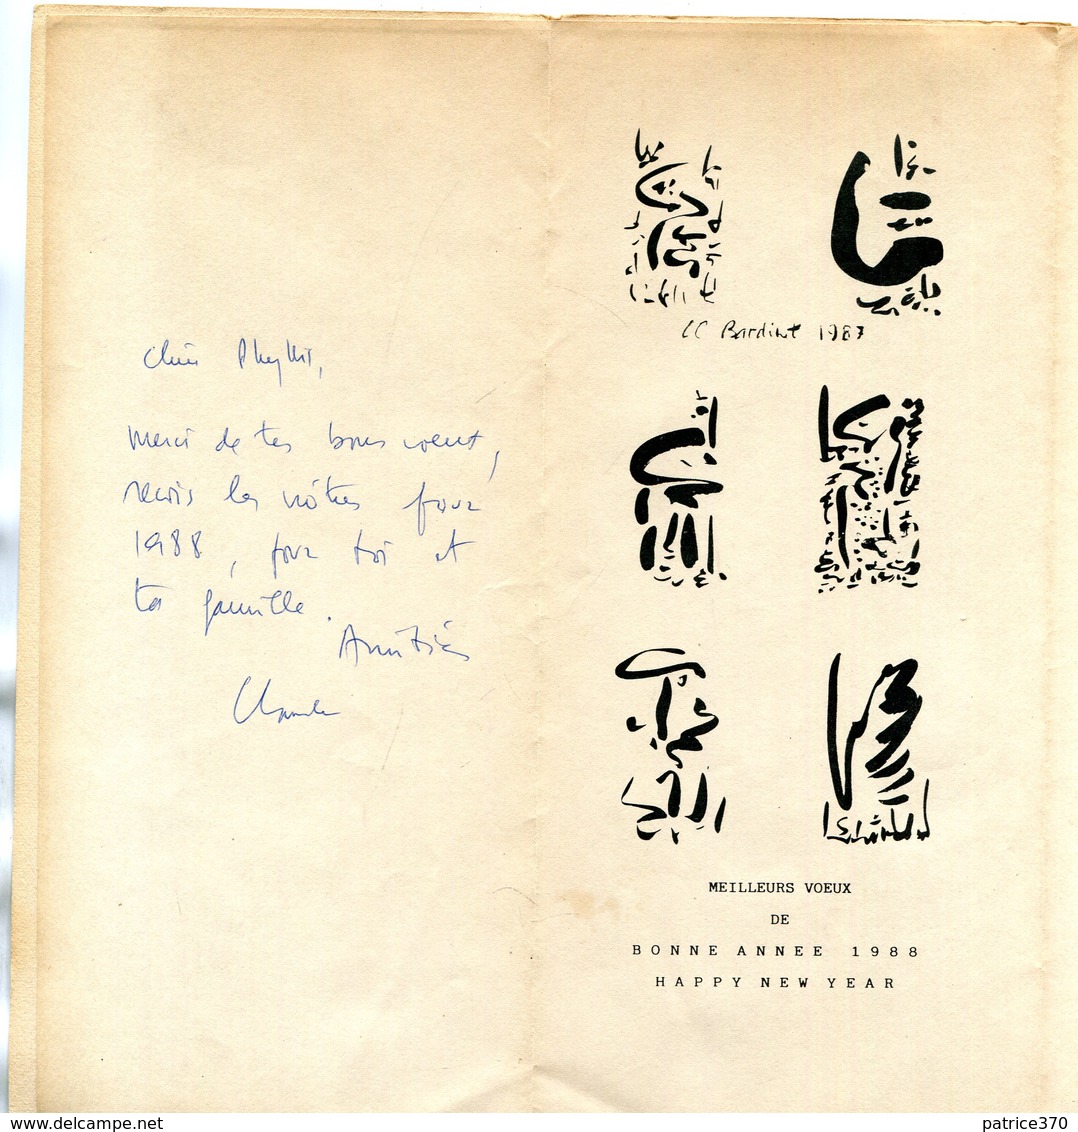 Chère Phyllis,
Merci de tes bons voeux,
reçois les nôtres pour
1988, pour toi et
ta famille.
Amitiés
Claude
CC Bardint 1987
MEILLEURS VOEUX
DE
BONNE ANNEE 1988
HAPPY NEW YEAR
www.delcampe.net
patrice370